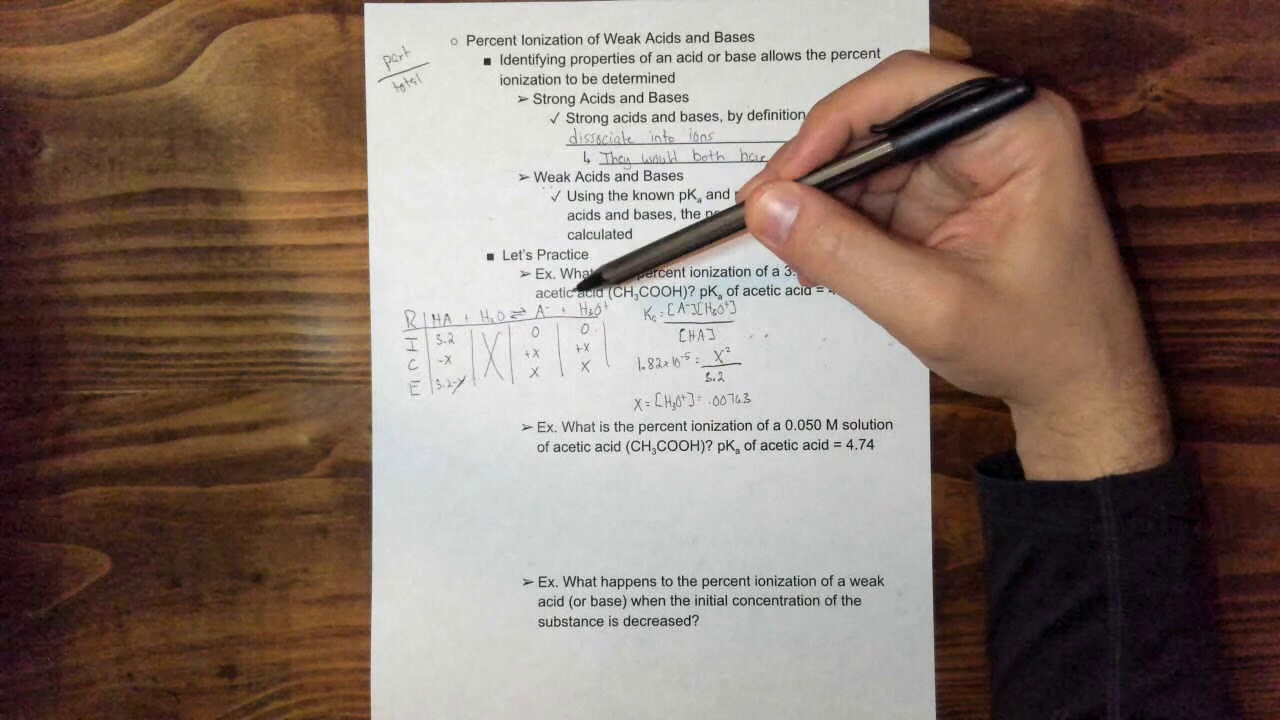 part
total
○ Percent Ionization of Weak Acids and Bases
▪ Identifying properties of an acid or base allows the percent
ionization to be determined
➢ Strong Acids and Bases
✓ Strong acids and bases, by definition
dissociate into ions
↳ They would both have
➢ Weak Acids and Bases
✓ Using the known pKₐ and
acids and bases, the
calculated
▪ Let's Practice
➢ Ex. What percent ionization of a 3.
acetic acid (CH₃COOH)? pKₐ of acetic acid =
R HA + H₂O ⇌ A⁻ + H₃O⁺
I 3.2 0 0
C -x +x +x
E 3.2-x x x
Kₐ = [A⁻][H₃O⁺]
[HA]
1.82×10⁻⁵ = X²
3.2
X = [H₃O⁺] = .00763
➢ Ex. What is the percent ionization of a 0.050 M solution
of acetic acid (CH₃COOH)? pKₐ of acetic acid = 4.74
➢ Ex. What happens to the percent ionization of a weak
acid (or base) when the initial concentration of the
substance is decreased?